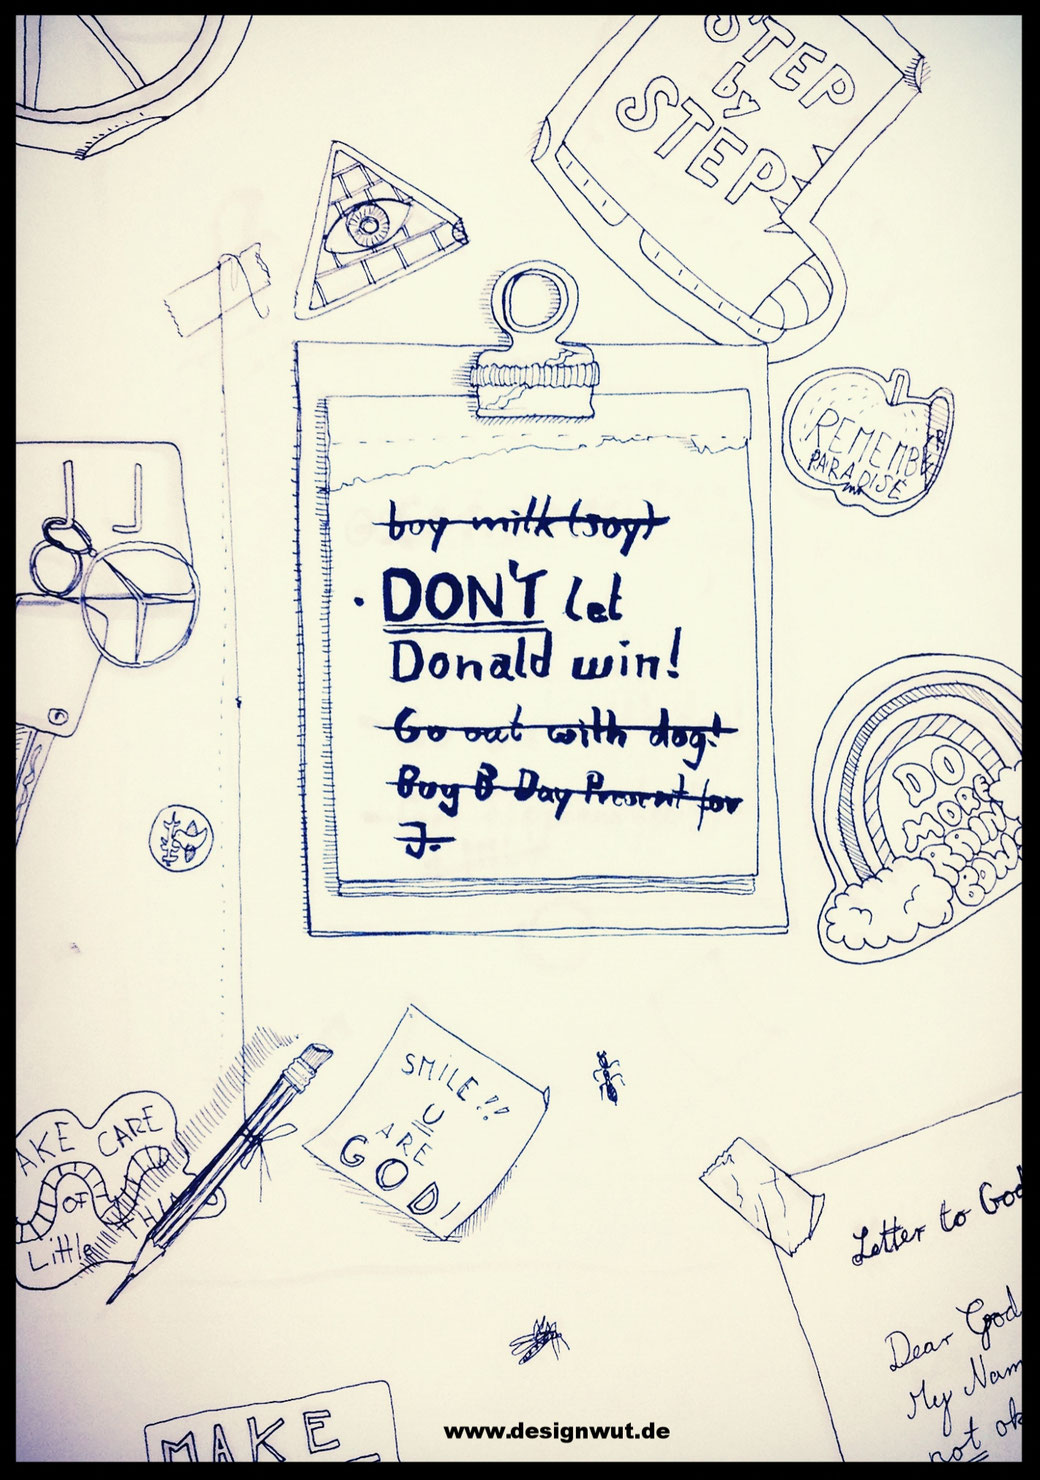 STEP
by
STEP
REMEMB
PARADISE
boy milk (soy)
· DON'T let
Donald win!
Go out with dog!
Buy B Day Present for
J.
DO
MORE
RAIN
BOWS
AKE CARE
OF
Little
SMILE!!
U
ARE
GOD!
Letter to God
Dear God
My Nam
not ok
MAKE
www.designwut.de